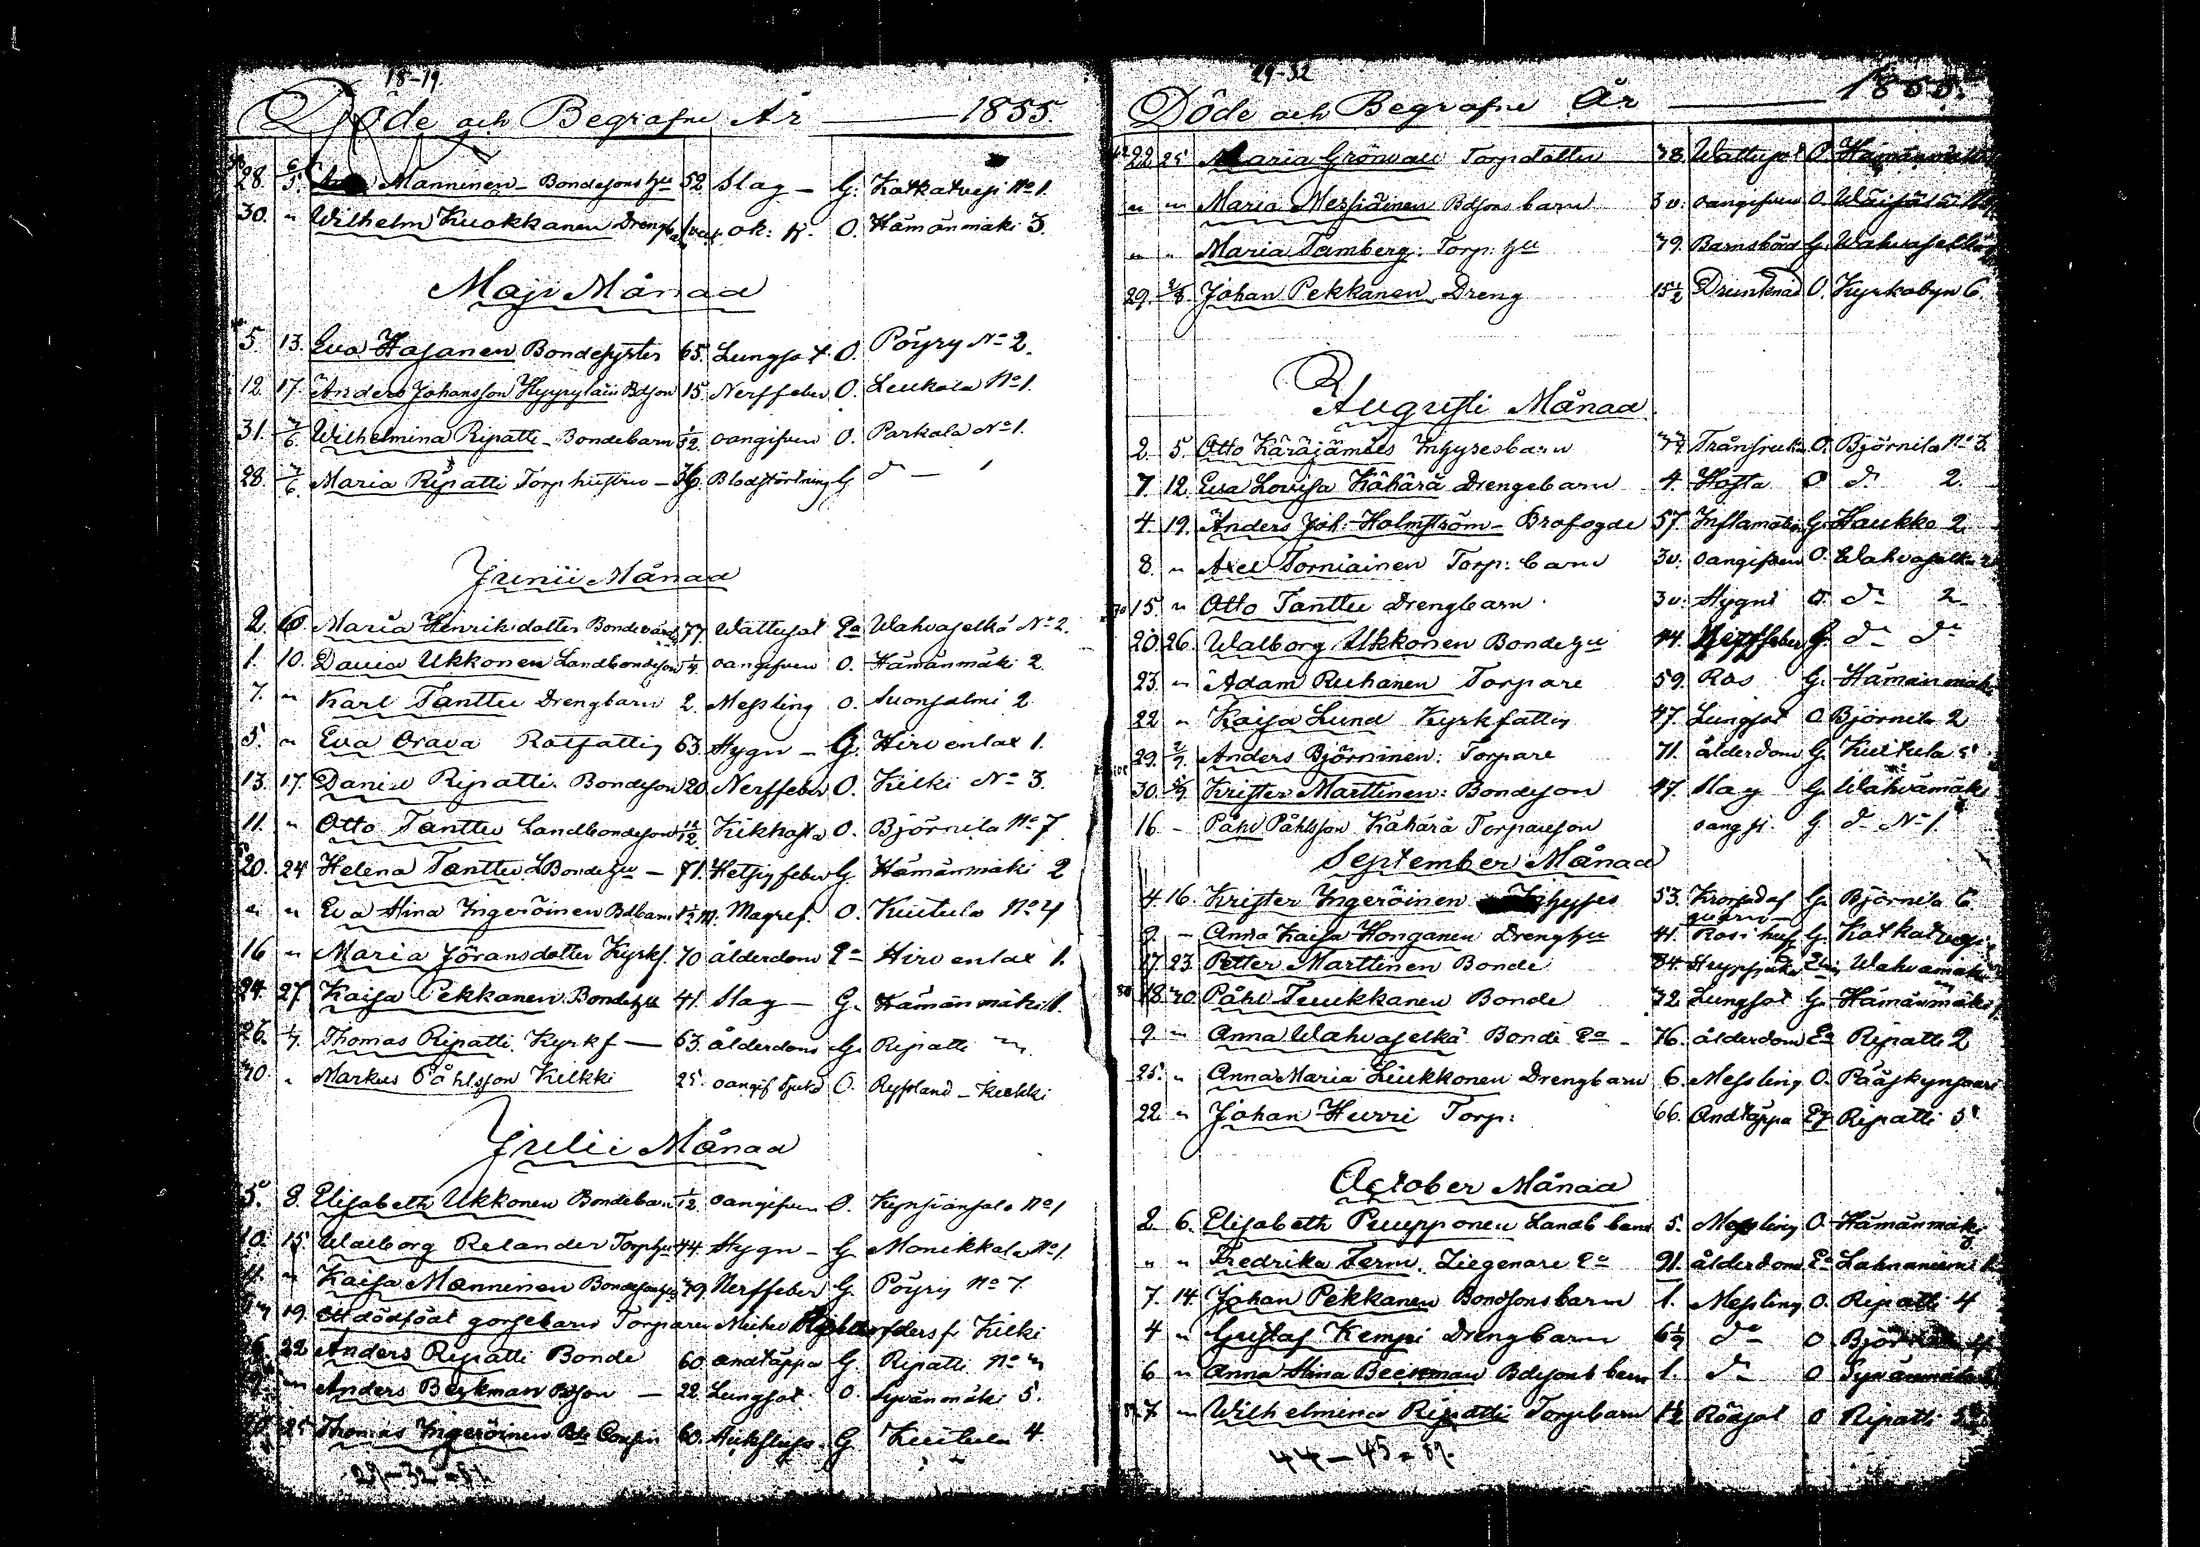 18-19.
Döde och Begrafne År — 1855.
28. 6/5. Manninen - Bondesons hu 52. Slag - G. Katkatvesi No 1.
30. " Wilhelm Kuokkanen Drengb. ok: K. O. Hämänmäki 3.
Maji Månad
5. 13. Eva Hasanen Bondesyster 65. Lungsot O. Pöyry No 2.
12. 17. Anders Johansson Hyyryläin Bdson 15. Nerffeber O. Leukola No 1.
31. 7/6 Wilhelmina Ripatti - Bondebarn 1/12 oangifven O. Parkala No 1.
28. 7/6. Maria Ripatti Torp. hustru - 36. Blodstörtning G d - "
Junii Månad
2. 10. Maria Henriksdotter Bonde 77 Wattusot Ea Wahvaselkä No 2.
1. 10. David Ukkonen Landbondeson 1/4 oangifven O. Hämänmäki 2.
7. " Karl Tanttu Drengbarn 2. Messling O. Suonsalmi 2
5. " Eva Orava Rotfattig 63. Stygn - G. Hirvenlax 1.
13. 17. Daniel Ripatti. Bondeson 20. Nerffeber O. Kilki No 3.
11. " Otto Tanttu Landbondeson Kikhosta O. Björnila No 7
20. 24 Helena Tanttu LBonde hu - 71. Hetsigfeber G. Hämänmäki 2
" " Eva Stina Ingeröinen Bdbarn 1 1/2 m. Magref. O. Kiitula No 4
16 " Maria Jöransdotter Kyrkf. 70 ålderdom Ea Hirvenlax 1.
24. 27 Kaisa Pekkanen Bondehu 41. Slag - G. Hämänmäki 1.
26. 1/7. Thomas Ripatti. Kyrkf - 63. ålderdom G. Ripatti
30. " Markus Påhlsson Kilkki 25. oangif sjukd O. Ryssland - Kilkki
Julii Månad
5. 8. Elisabeth Ukkonen Bondebarn 1/12. oangifven O. Kynsiänsalo No 1
10. 15. Walborg Relander Torphu 44. Stygn - G. Monikkala No 1.
11. " Kaisa Manninen Bondesonhu 49. Nerffeber G. Pöyry No 7.
19. Ett dödfödt gossebarn Torparen Kilki
16. 22 Anders Ripatti Bonde 60. andtäppa G. Ripatti No
" Anders Beckman Bdson - 22. Lungsot. O. Syvänmäki 5.
25 Thomas Ingeröinen Bde Cousin 60. G. Kiitula 4.
29-32=81.
29-32
Döde och Begrafne År — 1855.
22. 25 Maria Grönvall Torpdotter 78. Wattusot O. Hämänmäki
" " Maria Messiäinen Bdsons barn 3 v. oangifven O.
" " Maria Tamberg. Torp. hu 39. Barnsbörd G. Wahvaselkä
29. 2/8. Johan Pekkanen Dreng 15 1/2 Drunknad O. Kyrkobyn 6.
Augusti Månad
2. 5. Otto Käräjämies Inhysesbarn Transjuka O. Björnila No 3.
7. 12. Eva Lovisa Kähärä Drengebarn 4. Hosta O d. 2.
4. 19. Anders Joh. Holmström - Brofogde 57. Inflamation G. Haukko 2
8. " Axel Torniainen Torp. barn 3 v. oangifven O. Wahvaselkä 2
15. " Otto Tanttu Drengbarn 3 v. Stygn O. do 2
20. 26. Walborg Ukkonen Bonde hu 44. Nerffeber G. do do
23. " Adam Ruhanen Torpare 59. Ros G. Hämänmäki
22 " Kaisa Lund Kyrkfattig 47. Lungsot O Björnila 2
29. 2/9. Anders Björninen. Torpare 71. ålderdom G. Kiitula 5.
30. Krister Marttinen: Bondeson 47. Slag G. Wahvämäki
16. - Påhl Påhlsson Kähärä Torpareson oangif. G d No 1.
September Månad
4. 16. Krister Ingeröinen Inhyses 53. G. Björnila 6
- Anna Kaisa Honganen Dreng hu 41. G. Katkatvesi
17. 23. Petter Marttinen Bonde 84. Wahvamäki
18. 30. Påhl Tuukkanen Bonde 72. Lungsot G. Hämänmäki
9. " Anna Wahvaselkä Bonde Ea - 76. ålderdom Ea Ripatti 2
25. " Anna Maria Liukkonen Drengbarn 6. Messling O. Pääskynsaari
22 " Johan Hurri Torp: 66. Andtäppa Ripatti 5
October Månad
2. 6. Elisabeth Puupponen Landb barn 5. Messling O. Hämänmäki
" " Fredrika Term. Ziegenare Ea 91. ålderdom Ea Lahnaniemi
7. 14. Johan Pekkanen Bondsonsbarn 1. Messling O. Ripatti 4
4 " Gustaf Kempi Drengbarn do O
6 " Anna Stina Beckman Bdsons barn 1. do O Syvänmäki
7 " Wilhelmina Ripatti Torpbarn 1 1/2 Rödsot O Ripatti 5
44-45=89.